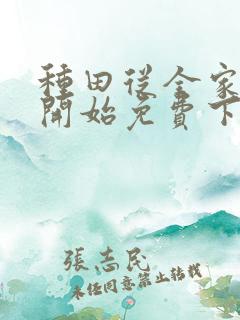 種田從全家
開始免費下
張志民
未经同意禁止转载